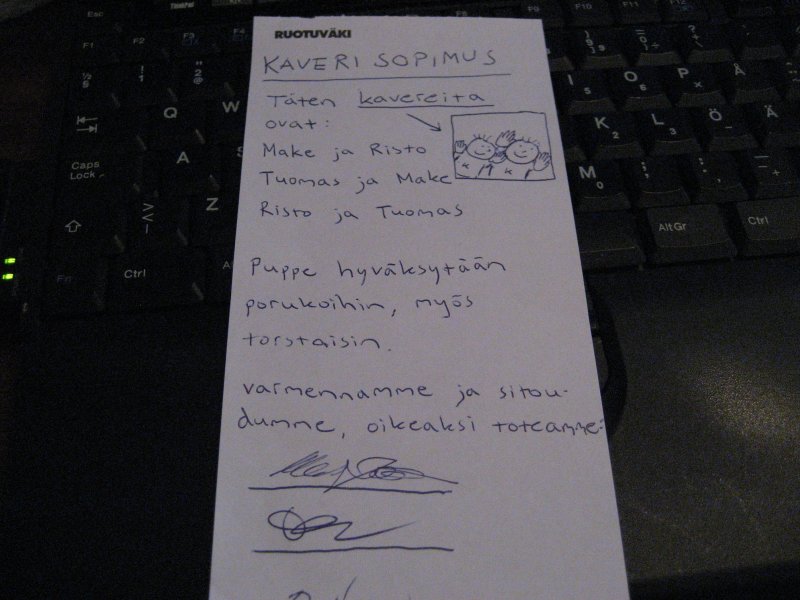 RUOTUVÄKI
KAVERI SOPIMUS
Täten kavereita
ovat:
Make ja Risto
Tuomas ja Make
Risto ja Tuomas
Puppe hyväksytään
porukoihin, myös
torstaisin.
varmennamme ja sitou-
dumme, oikeaksi toteamme:
ThinkPad
Esc
F1
F2
F3
F4
F9
F10
F11
F12
Q
W
A
S
Z
Caps
Lock
Fn
Ctrl
I
O
P
Å
K
L
Ö
Ä
M
Alt Gr
Ctrl